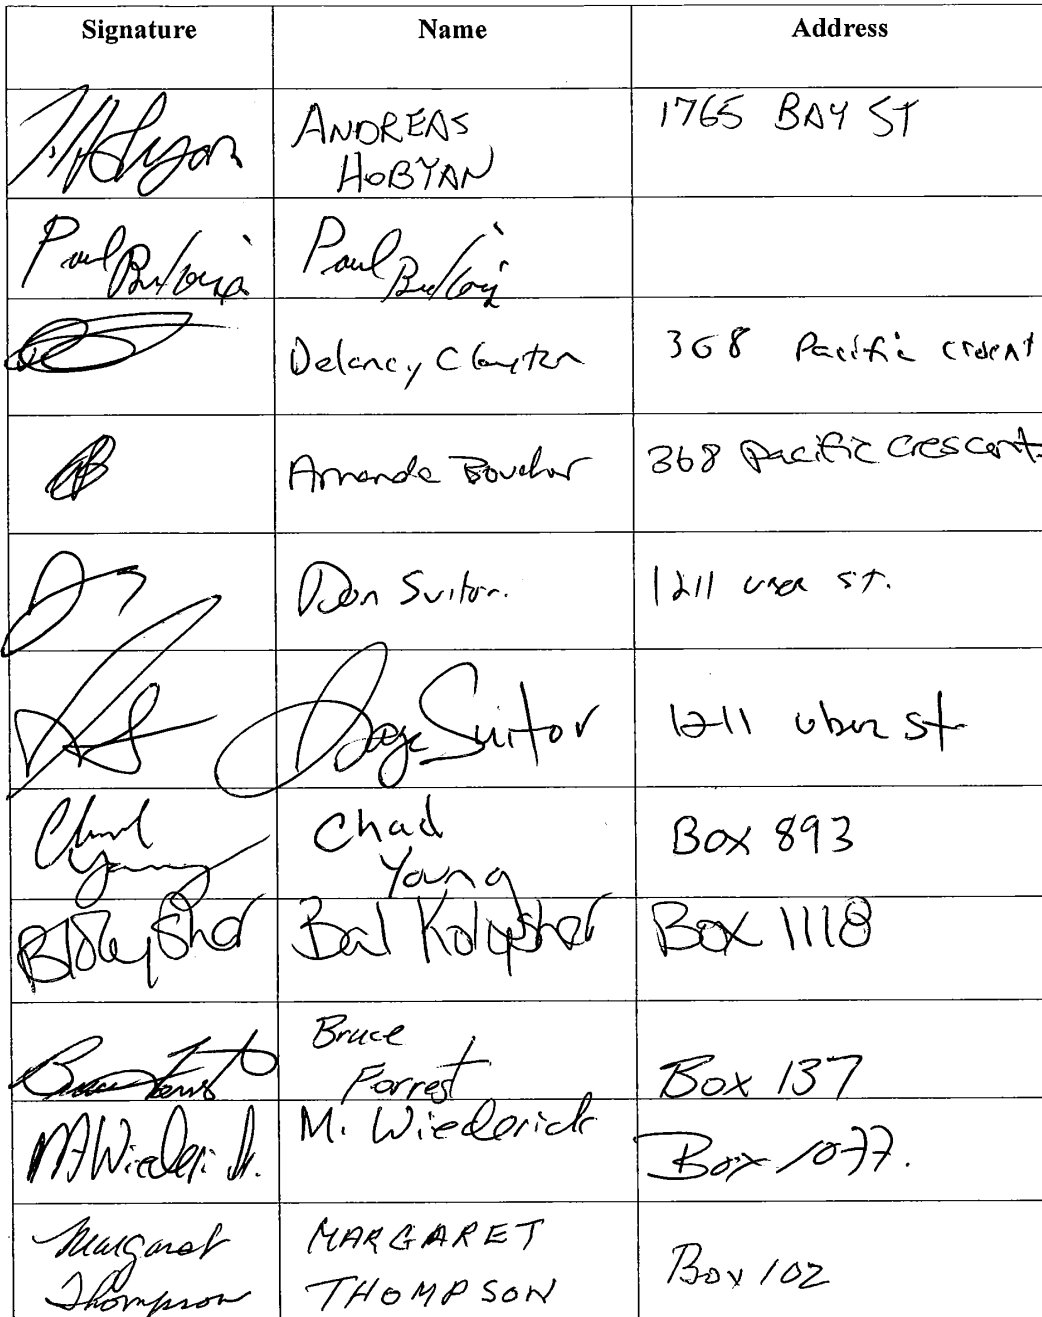 Signature Name Address
ANDREAS HOBYAN 1765 BAY ST
Paul Paul
Delaney Clayton 368 Pacific cresent
Amanda Boucher 368 Pacific Crescent
Don Suitor. 1211 st.
Suitor 1211 uber st
Chad Young Chad Young Box 893
Box 1118
Bruce Forrest Bruce Forrest Box 137
M Wiederick M. Wiederick Box 1077.
Margaret Thompson MARGARET THOMPSON Box 102